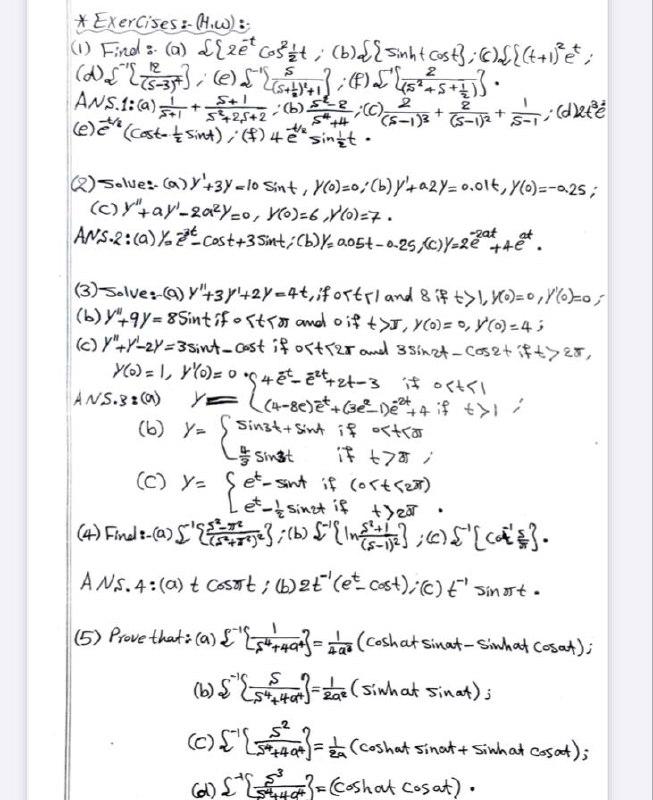 * Exercises:- (H.w):-
(1) Find: (a) ℒ{2e^-t cos²½t ; (b) ℒ{sinht cost}; (c) ℒ{(t+1)²e^t ;
(d) ℒ⁻¹{12/(s-3)⁴} ; (e) ℒ⁻¹{s/((s+½)²+1)} ; (f) ℒ⁻¹{2/(s²+s+½)} .
ANS.1: (a) 1/(s+1) + (s+1)/(s²+2s+2) ; (b) (s²-2)/(s⁴+4) ; (c) 2/(s-1)³ + 2/(s-1)² + 1/(s-1) ; (d) 2t³e^3t
(e) e^-t/2 (cost-½ sint) ; (f) 4e^-t/2 sin½t .
(2) Solve:- (a) y'+3y=10 sint, y(0)=0; (b) y'+0.2y=0.01t, y(0)=-0.25;
(c) y''+ay'-2a²y=0, y(0)=6, y'(0)=7.
ANS.2: (a) y=e^-3t-cost+3sint; (b) y=0.05t-0.25, (c) y=2e^-2at+4e^at .
(3) Solve:- (a) y''+3y'+2y=4t, if 0<t<1 and 8 if t>1, y(0)=0, y'(0)=0;
(b) y''+9y=8sint if 0<t<π and 0 if t>π, y(0)=0, y'(0)=4;
(c) y''+y'-2y=3sint-cost if 0<t<2π and 3sin2t-cos2t if t>2π,
y(0)=1, y'(0)=0.
ANS.3: (a) y= { 4e^-t-e^-2t+2t-3 if 0<t<1
(4-8e)e^-t+(3e²-1)e^-2t+4 if t>1 ;
(b) y= { sin3t+sint if 0<t<π
4/3 sin3t if t>π ;
(c) y= { e^t-sint if (0<t<2π)
e^t-½ sin2t if t>2π .
(4) Find:- (a) ℒ⁻¹{(s²-π²)/(s²+π²)²}; (b) ℒ⁻¹{ln (s²+1)/(s-1)²}; (c) ℒ⁻¹{cot⁻¹ s/π}.
ANS.4: (a) t cosπt ; (b) 2t⁻¹(e^t-cost); (c) t⁻¹ sinπt .
(5) Prove that: (a) ℒ⁻¹{1/(s⁴+4a⁴)}= 1/4a³ (coshat sinat-sinhat cosat);
(b) ℒ⁻¹{s/(s⁴+4a⁴)}= 1/2a² (sinhat sinat);
(c) ℒ⁻¹{s²/(s⁴+4a⁴)}= 1/2a (coshat sinat+ sinhat cosat);
(d) ℒ⁻¹{s³/(s⁴+4a⁴)}=(coshat cosat).